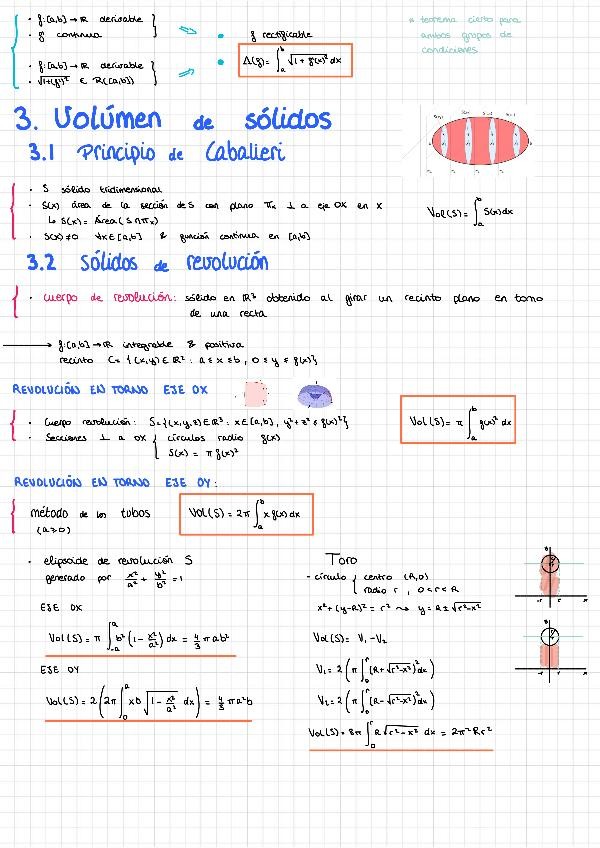 · f: [a,b] → ℝ derivable
· f' continua
· f: [a,b] → ℝ derivable
· √1+(f')² ∈ R([a,b])
· f rectificable
· Λ(f) = ∫ₐᵇ √1 + f'(x)² dx
* teorema cierto para
ambos grupos de
condiciones
3. Volúmen de sólidos
3.1 Principio de Cabalieri
· S sólido tridimensional
· S(x) área de la sección de S con plano πₓ ⊥ a eje OX en x
↳ S(x) = Área(S∩πₓ)
· S(x) ≠ 0 ∀x∈[a,b] & función continua en [a,b]
Vol(S) = ∫ₐᵇ S(x) dx
3.2 Sólidos de revolución
· cuerpo de revolución: sólido en ℝ³ obtenido al girar un recinto plano en torno
de una recta
→ f: [a,b] → ℝ integrable & positiva
recinto C = {(x,y) ∈ ℝ² : a ≤ x ≤ b, 0 ≤ y ≤ f(x)}
REVOLUCIÓN EN TORNO EJE OX
· Cuerpo revolución: S = {(x,y,z) ∈ ℝ³ : x ∈ [a,b], y²+z² ≤ f(x)²}
· Secciones ⊥ a OX { círculos radio f(x)
S(x) = π f(x)²
Vol(S) = π ∫ₐᵇ f(x)² dx
REVOLUCIÓN EN TORNO EJE OY:
método de los tubos
(a≥0)
Vol(S) = 2π ∫ₐᵇ x f(x) dx
· elipsoide de revolución S
generado por x²/a² + y²/b² = 1
EJE OX
Vol(S) = π ∫₋ₐᵃ b² (1 - x²/a²) dx = 4/3 π ab²
EJE OY
Vol(S) = 2 (2π ∫₀ᵃ x b √1 - x²/a² dx) = 4/3 π a²b
Toro
- círculo { centro (R,0)
radio r, 0<r<R
x² + (y-R)² = r² ⤳ y = R ± √r²-x²
Vol(S) = V₁ - V₂
V₁ = 2 (π ∫₀ʳ (R+√r²-x²)² dx)
V₂ = 2 (π ∫₀ʳ (R-√r²-x²)² dx)
Vol(S) = 8π ∫₀ʳ R √r²-x² dx = 2π² R r²